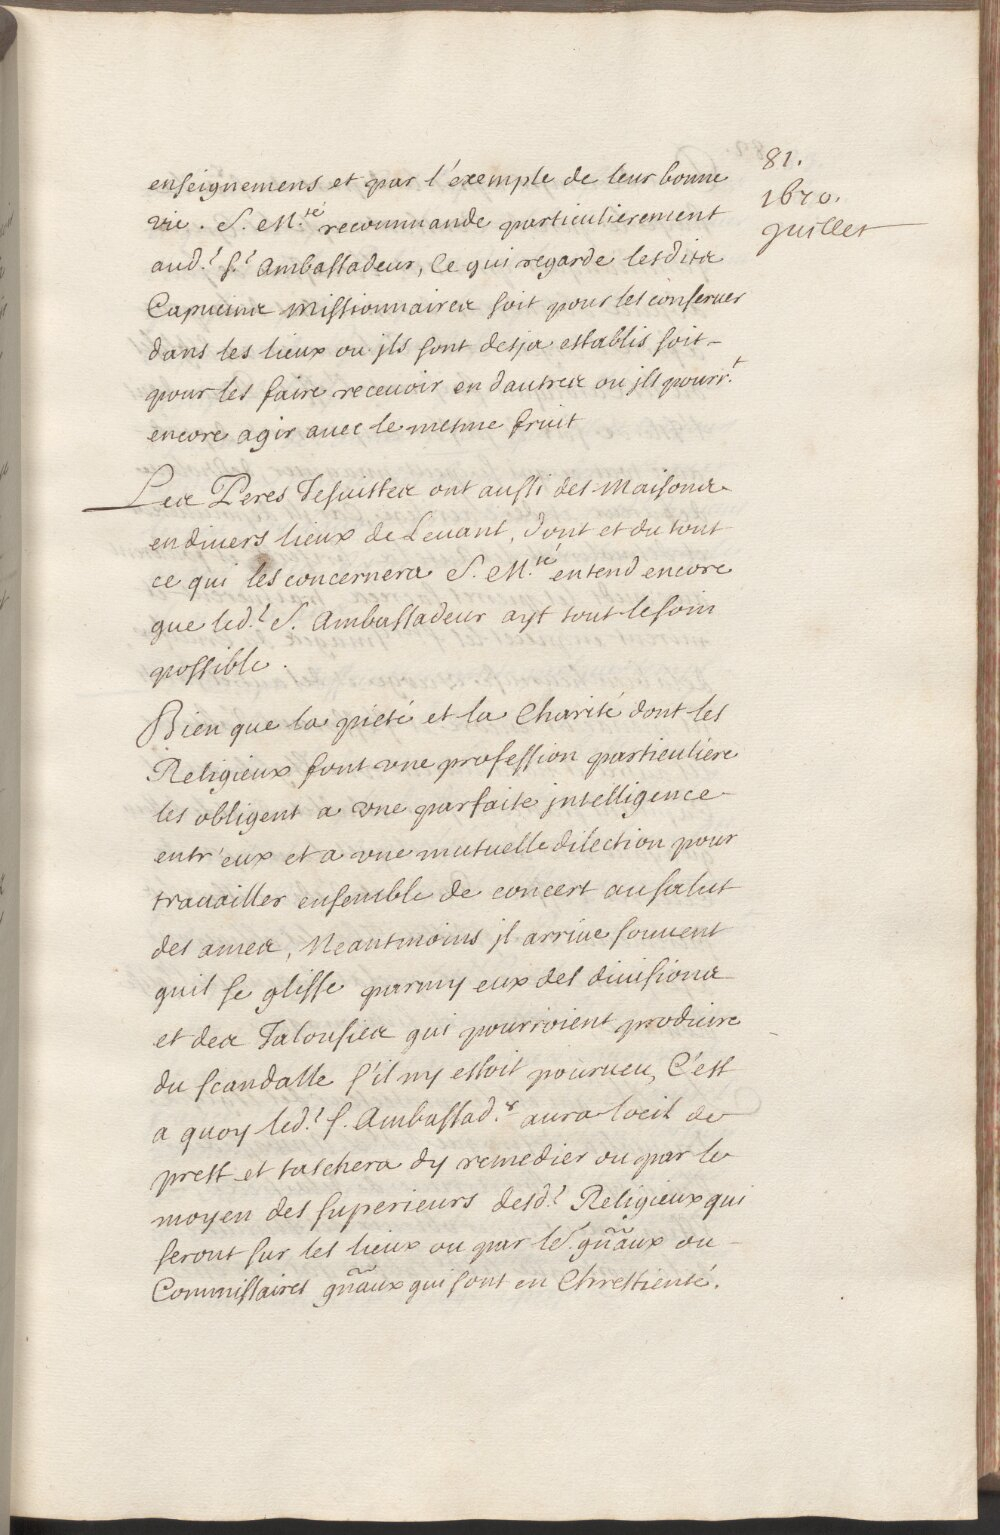 81.
1670.
Juillet
enseignemens et par l'éxemple de leur bonne
vie. S. M.té recommande particulierement
aud.t S.r Ambassadeur, ce qui regarde lesdits
Capucins Missionnaires soit pour les conseruer
dans les lieux ou jls sont desja establis soit
pour les faire receuoir en dautres ou jls pourr.t
encore agir auec le mesme fruit
Les Peres Jesuistes ont aussi des Maisons
en diuers lieux de Leuant, dont et du tout
ce qui les concernera S. M.té entend encore
que led.t S. Ambassadeur ayt tout le soin
possible.
Bien que la pieté et la Charité dont les
Religieux font vne profession particuliere
les obligent a vne parfaite jntelligence
entr'eux et a vne mutuelle dilection pour
trauailler ensemble de concert au salut
des ames, Neantmoins jl arriue souuent
quil se glisse parmy eux des diuisions
et des Jalousies qui pourroient produire
du scandalle s'il ny estoit pourueu, C'est
a quoy led.t S. Ambassad.r aura loeil de
prest et taschera dy remedier ou par le
moyen des superieurs desd.t Religieux qui
seront sur les lieux ou par les gñaux ou
Commissaires gñaux qui sont en Chrestienté.